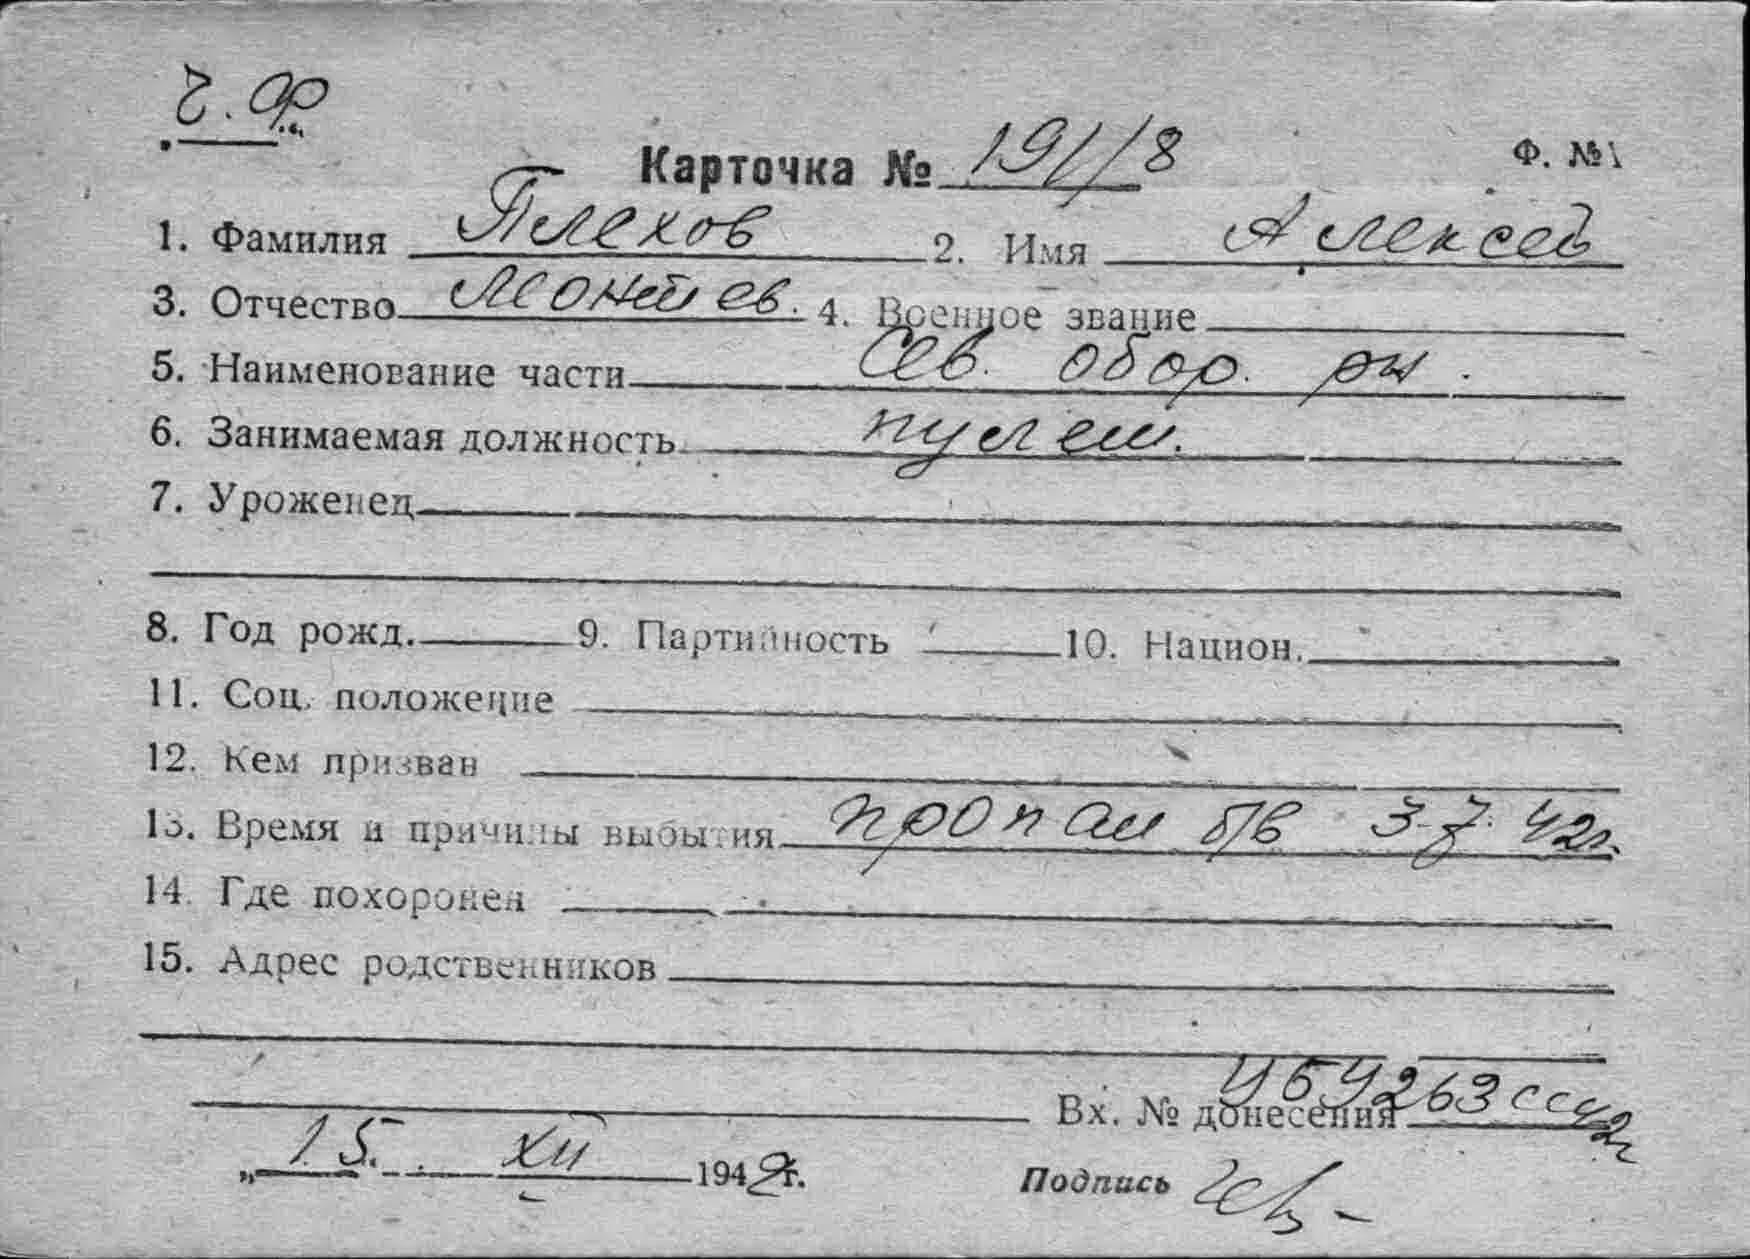 Ч. Ф
Карточка № 191/8 Ф. №1
1. Фамилия Плехов 2. Имя Алексей
3. Отчество Леонтьев. 4. Военное звание
5. Наименование части Сев. обор. рн.
6. Занимаемая должность пулем.
7. Уроженец
8. Год рожд. 9. Партийность 10. Национ.
11. Соц. положение
12. Кем призван
13. Время и причины выбытия пропал б/в 3-7. 42г.
14. Где похоронен
15. Адрес родственников
Вх. № донесения
„15. XII 1942г. Подпись